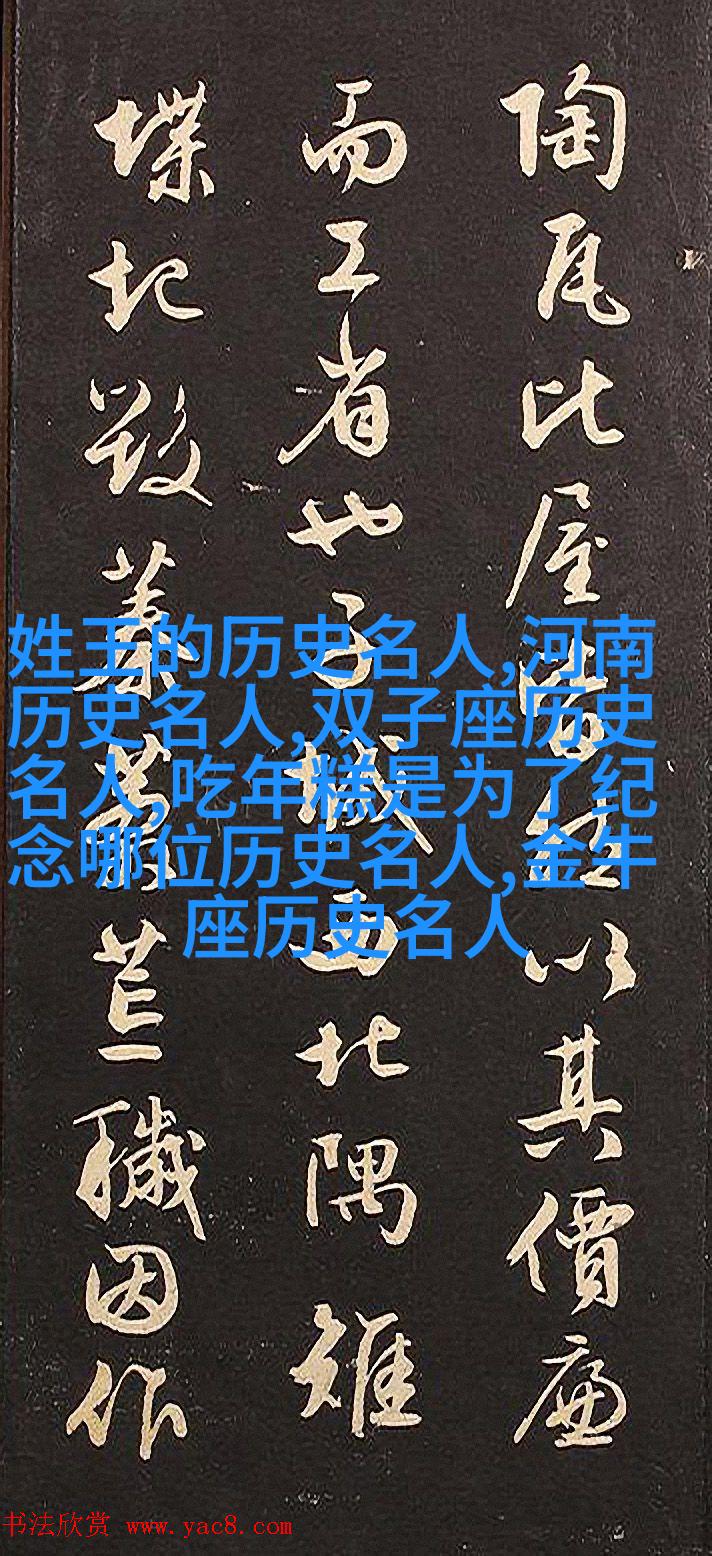 陶瓦比屋以其價廉
而工省也子城西北隅雉
堞圮毀蓁荒穢因作
姓王的历史名人,河南
历史名人,双子座历史
名人,吃年糕是为了纪
念哪位历史名人,金牛
座历史名人
书法欣赏 www.yac8.com